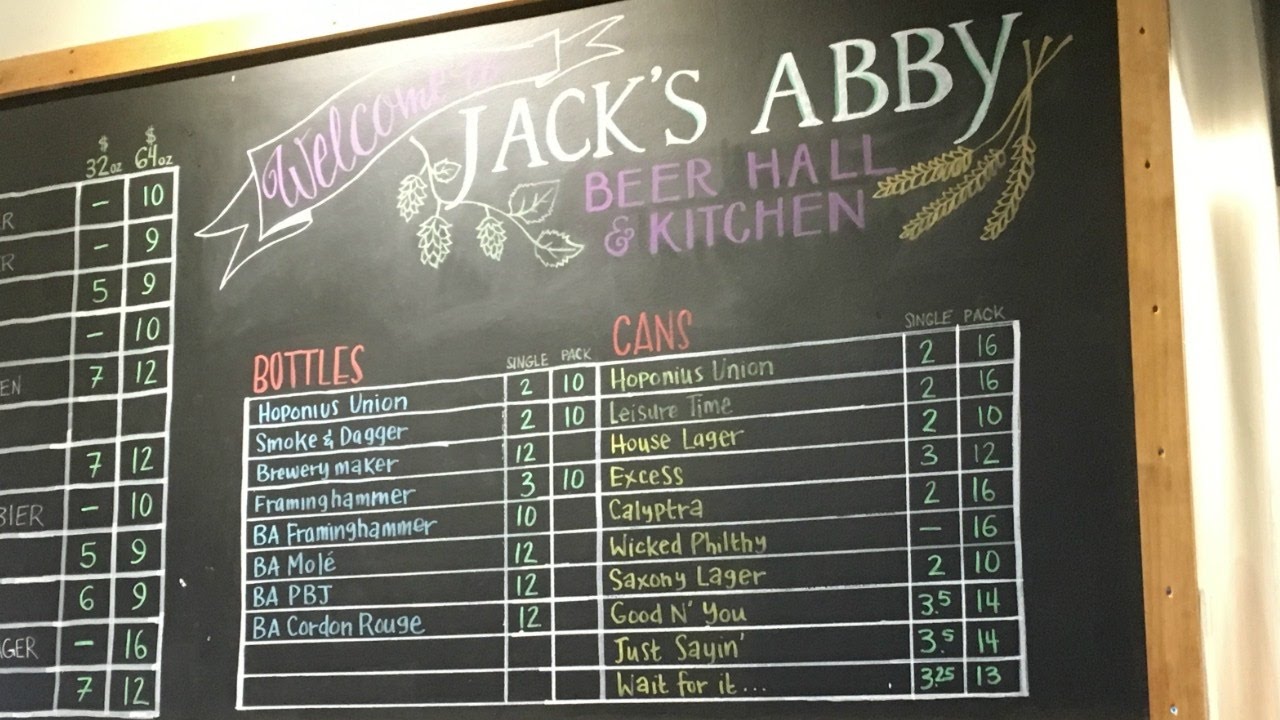 $ $
32oz 64oz
R – 10
R – 9
5 9
– 10
EN 7 12
7 12
BIER – 10
5 9
6 9
GER – 16
7 12
Welcome to
JACK'S ABBY
BEER HALL
& KITCHEN
BOTTLES SINGLE PACK
Hoponius Union 2 10
Smoke & Dagger 2 10
Brewery maker 12
Framinghammer 3 10
BA Framinghammer 10
BA Molé 12
BA PBJ 12
BA Cordon Rouge 12
CANS SINGLE PACK
Hoponius Union 2 16
Leisure Time 2 16
House Lager 2 10
Excess 3 12
Calyptra 2 16
Wicked Philthy – 16
Saxony Lager 2 10
Good N' You 3.5 14
Just Sayin' 3.5 14
Wait for it... 3.25 13